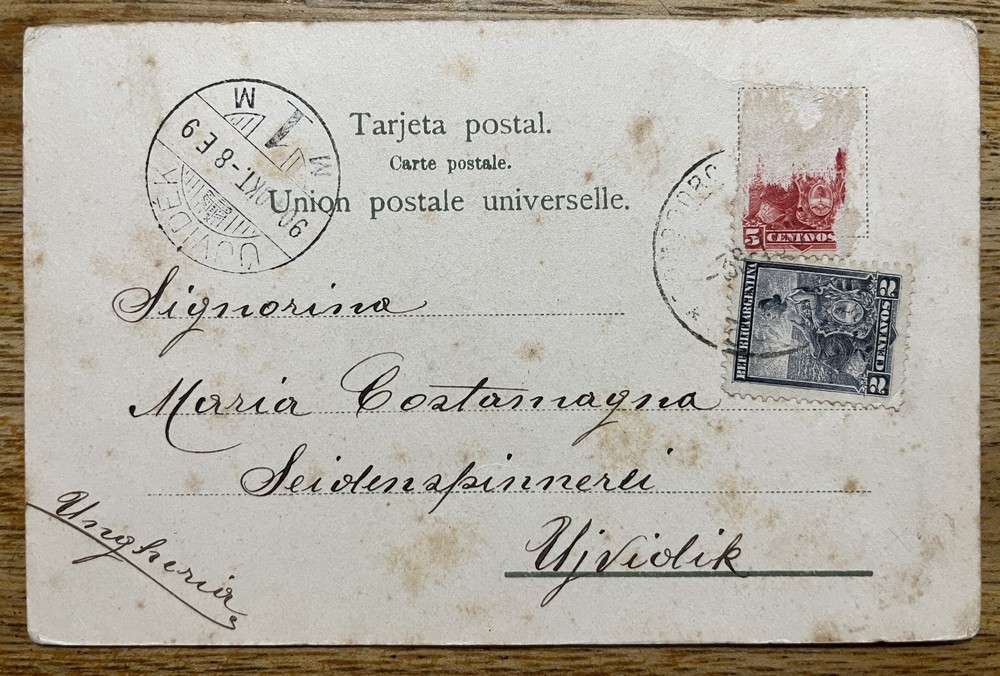 Tarjeta postal.
Carte postale.
Union postale universelle.
UJVIDEK
M
1
M
90 OKT.-8 E 9
5 CENTAVOS
REPUBLICA ARGENTINA
2 CENTAVOS 2
Signorina
Maria Costamagna
Seidenspinnerei
Ujvidik
Ungheria